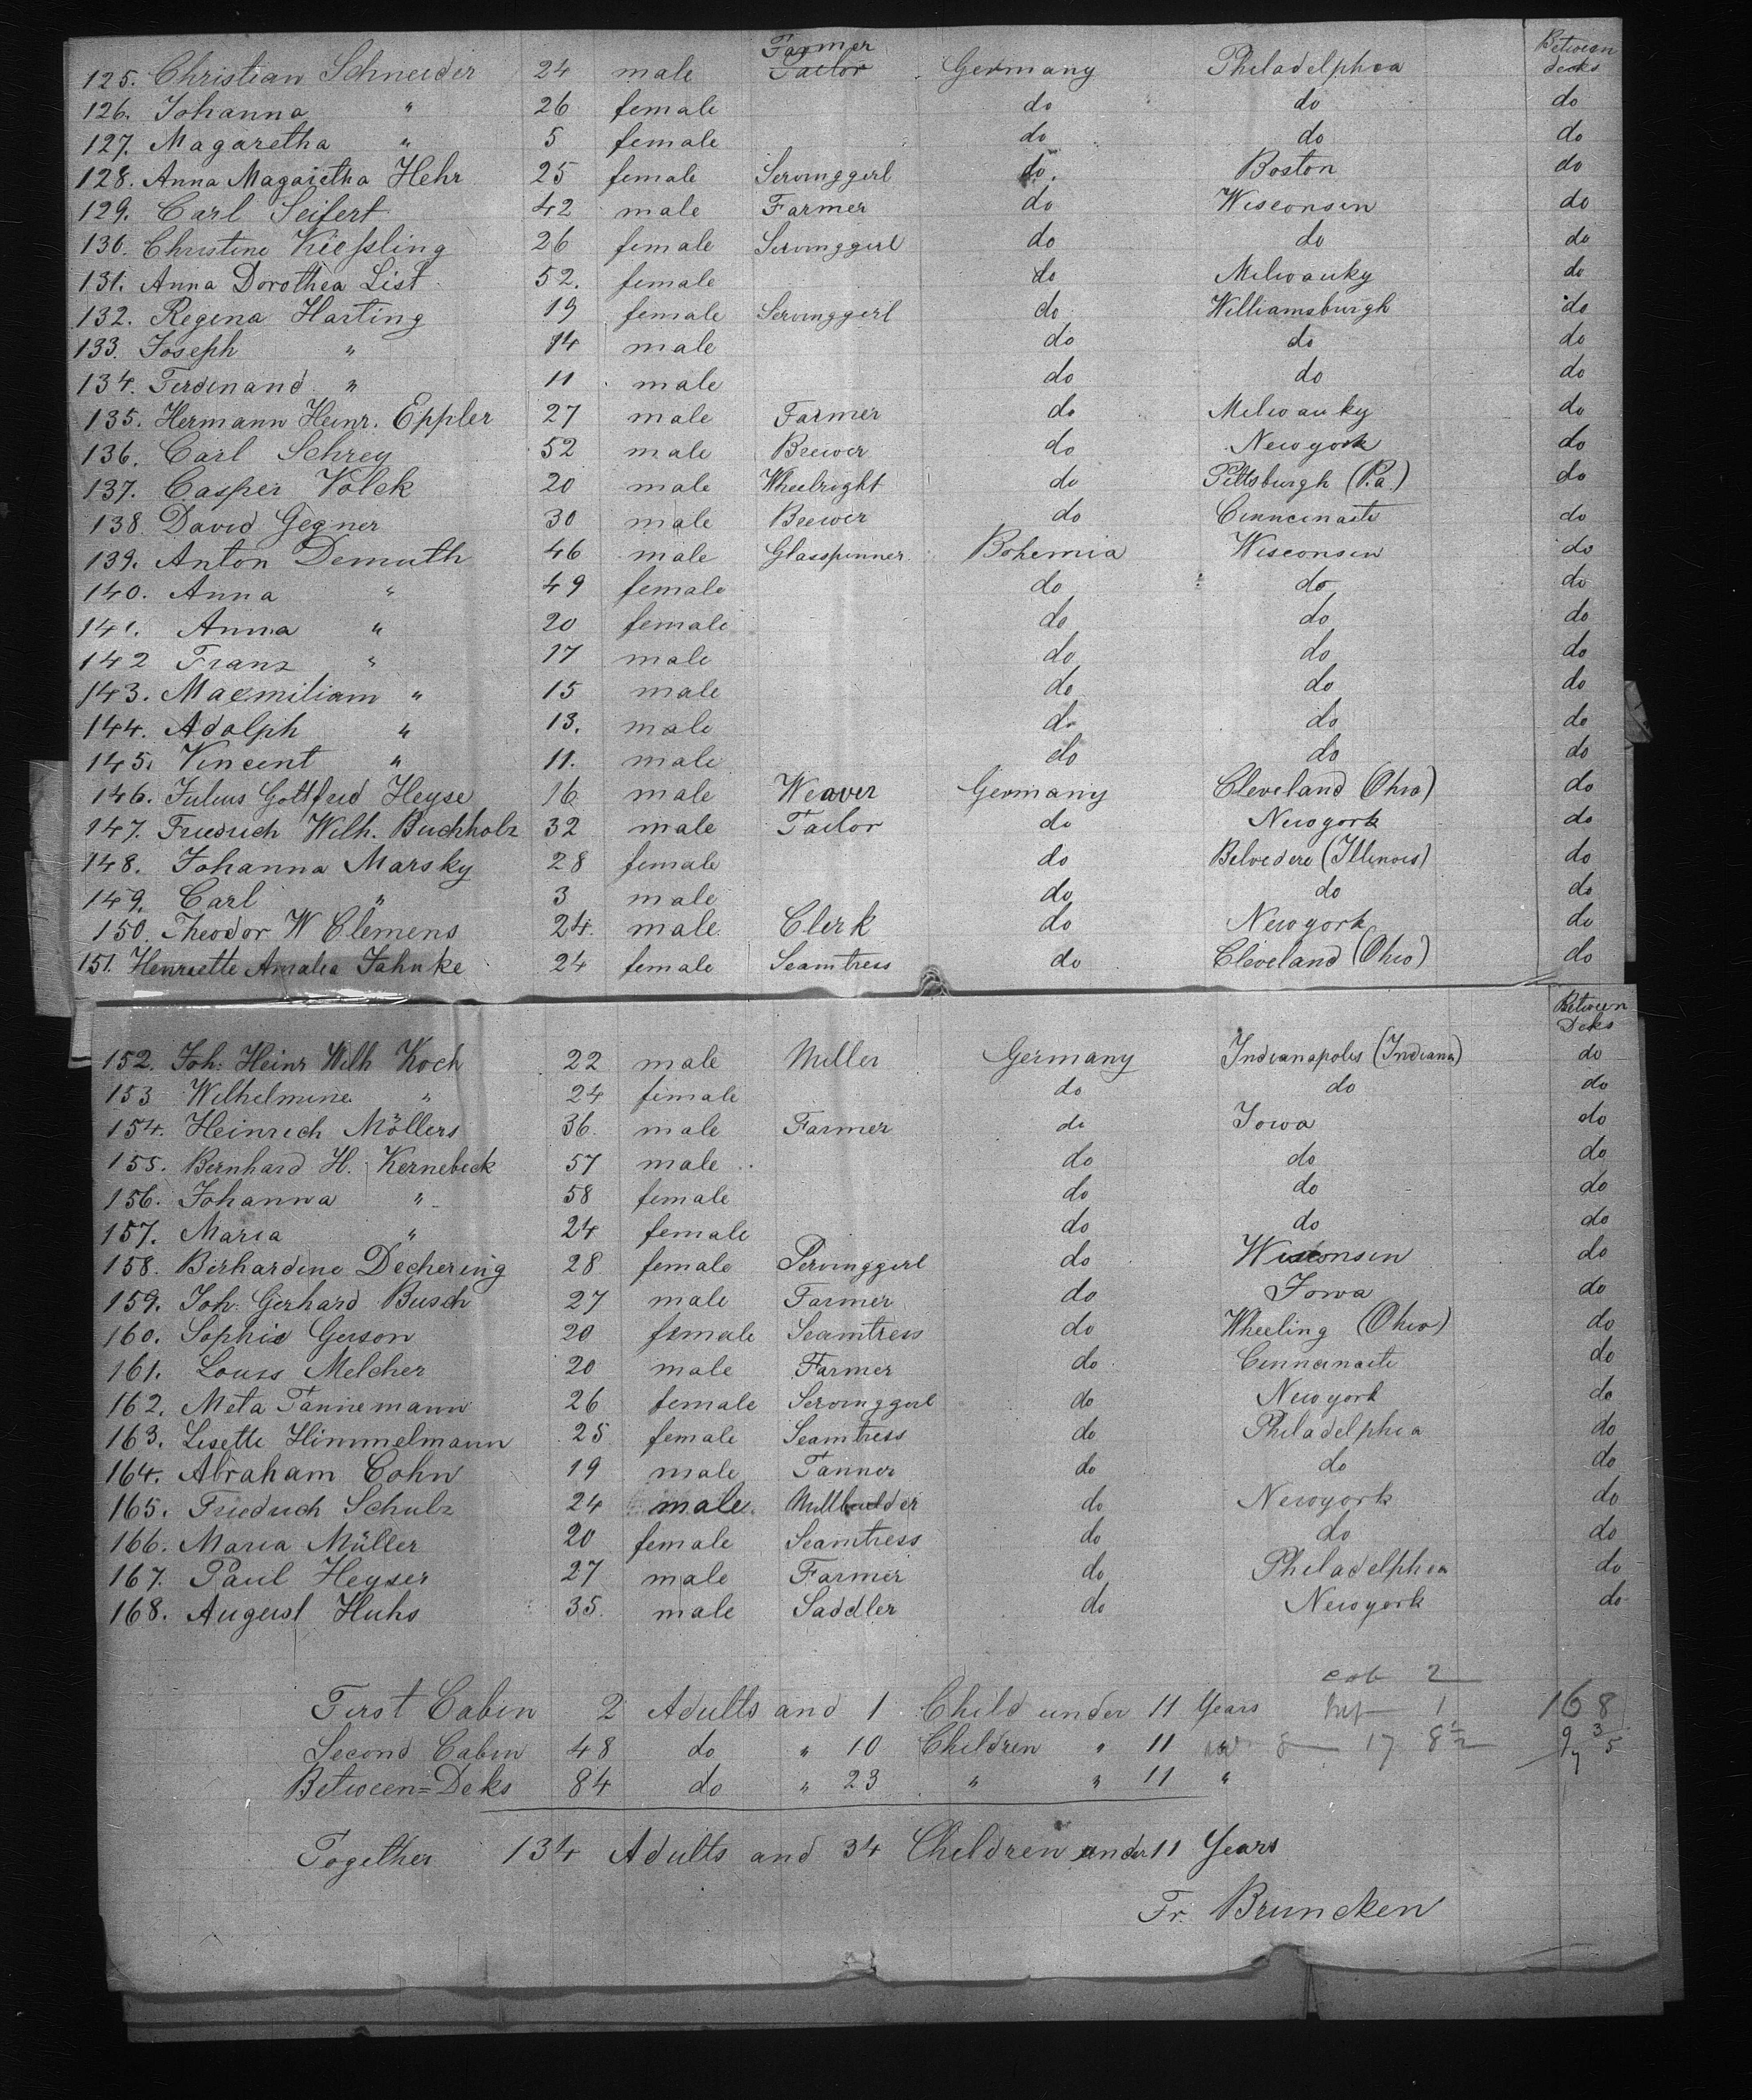 Between decks
125. Christian Schneider 24 male Farmer Tailor Germany Philadelphia
126. Johanna " 26 female do do do
127. Magaretha " 5 female do do do
128. Anna Magaretha Hehr 25 female Servinggirl do. Boston do
129. Carl Seifert 42 male Farmer do Wisconsin do
130. Christine Kießling 26 female Servinggirl do do do
131. Anna Dorothea List 52. female do Milwauky do
132. Regina Harting 19 female Servinggirl do Williamsburgh do
133. Joseph " 14 male do do do
134. Ferdinand " 11 male do do do
135. Hermann Heinr. Eppler 27 male Farmer do Milwauky do
136. Carl Schrey 52 male Brewer do Newyork do
137. Casper Volck 20 male Wheelright do Pittsburgh (Pa.) do
138. David Gegner 30 male Brewer do Cinncinaiti do
139. Anton Demuth 46 male Glasspinner Bohemia Wisconsin do
140. Anna " 49 female do do do
141. Anna " 20 female do do do
142 Franz " 17 male do do do
143. Maxmiliam " 15 male do do do
144. Adolph " 13. male do do do
145. Vincent " 11. male do do do
146. Julius Gottfried Heyse 16 male Weaver Germany Cleveland (Ohio) do
147. Friedrich Wilh. Buchholz 32 male Tailor do Newyork do
148. Johanna Marsky 28 female do Belvedere (Illinois) do
149. Carl " 3 male do do do
150. Theodor W Clemens 24. male Clerk do Newyork do
151. Henriette Amalia Jahnke 24 female Seamtress do Cleveland (Ohio) do
Between Deks
152. Joh. Heinr Wilh Koch 22 male Miller Germany Indianapolis (Indiana) do
153 Wilhelmine " 24 female do do do
154. Heinrich Möllers 36. male Farmer do Iowa do
155. Bernhard H. Kernebeck 57 male do do do
156. Johanna " 58 female do do do
157. Maria " 24 female do do do
158. Berhardine Dechering 28 female Servinggirl do Wisconsin do
159. Joh. Gerhard Busch 27 male Farmer do Iowa do
160. Sophie Gerson 20 female Seamtress do Wheeling (Ohio) do
161. Louis Melcher 20 male Farmer do Cinncinaiti do
162. Meta Tannemann 26 female Servinggirl do Newyork do
163. Lisette Himmelmann 25 female Seamtress do Philadelphia do
164. Abraham Cohn 19 male Tanner do do do
165. Friedrich Schulz 24 male Millbuilder do Newyork do
166. Maria Müller 20 female Seamtress do do do
167. Paul Heyser 27 male Farmer do Philadelphia do
168. August Huhs 35. male Saddler do Newyork do
2
First Cabin 2 Adults and 1 Child under 11 Years 1 168
Second Cabin 48 do " 10 Children " 11 8 17
Between=Deks 84 do " 23 " " 11 "
Together 134 Adults and 34 Children under 11 Years
Fr. Bruncken